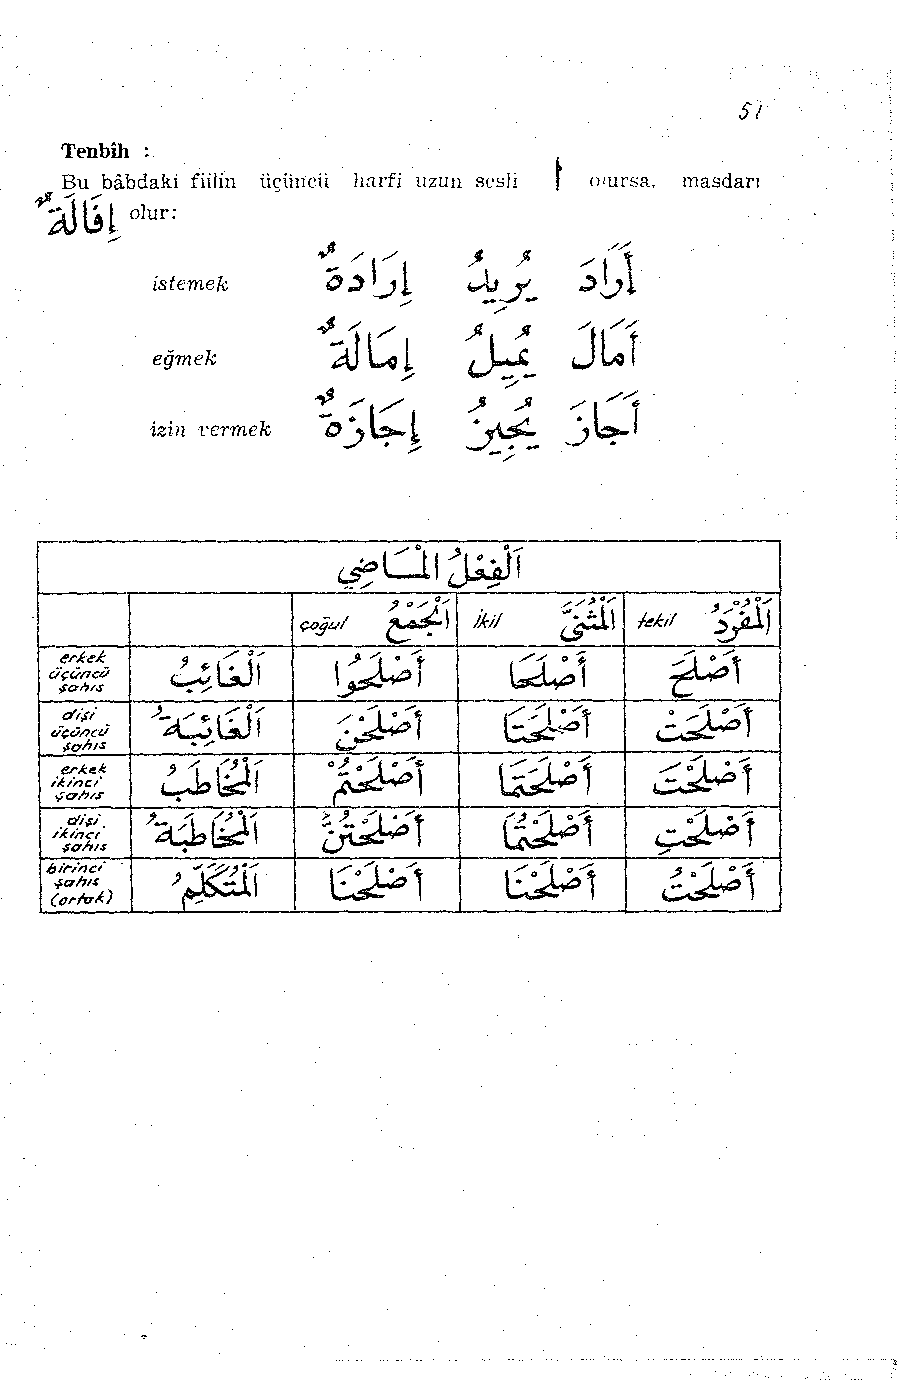 51
Tenbîh :
Bu bâbdaki fiilin üçüncü harfi uzun sesli ا olursa, masdarı
إِفَالَةٌ olur:
istemek إِرَادَةٌ يُرِيدُ أَرَادَ
eğmek إِمَالَةٌ يُمِيلُ أَمَالَ
izin vermek إِجَازَةٌ يُجِيزُ أَجَازَ
اَلْفِعْلُ الْمَاضِي
çoğul اَلْجَمْعُ ikil اَلْمُثَنَّى tekil اَلْمُفْرَدُ
erkek üçüncü şahıs اَلْغَائِبُ أَصْلَحُوا أَصْلَحَا أَصْلَحَ
dişi üçüncü şahıs اَلْغَائِبَةُ أَصْلَحْنَ أَصْلَحَتَا أَصْلَحَتْ
erkek ikinci şahıs اَلْمُخَاطَبُ أَصْلَحْتُمْ أَصْلَحْتُمَا أَصْلَحْتَ
dişi ikinci şahıs اَلْمُخَاطَبَةُ أَصْلَحْتُنَّ أَصْلَحْتُمَا أَصْلَحْتِ
birinci şahıs (ortak) اَلْمُتَكَلِّمُ أَصْلَحْنَا أَصْلَحْنَا أَصْلَحْتُ